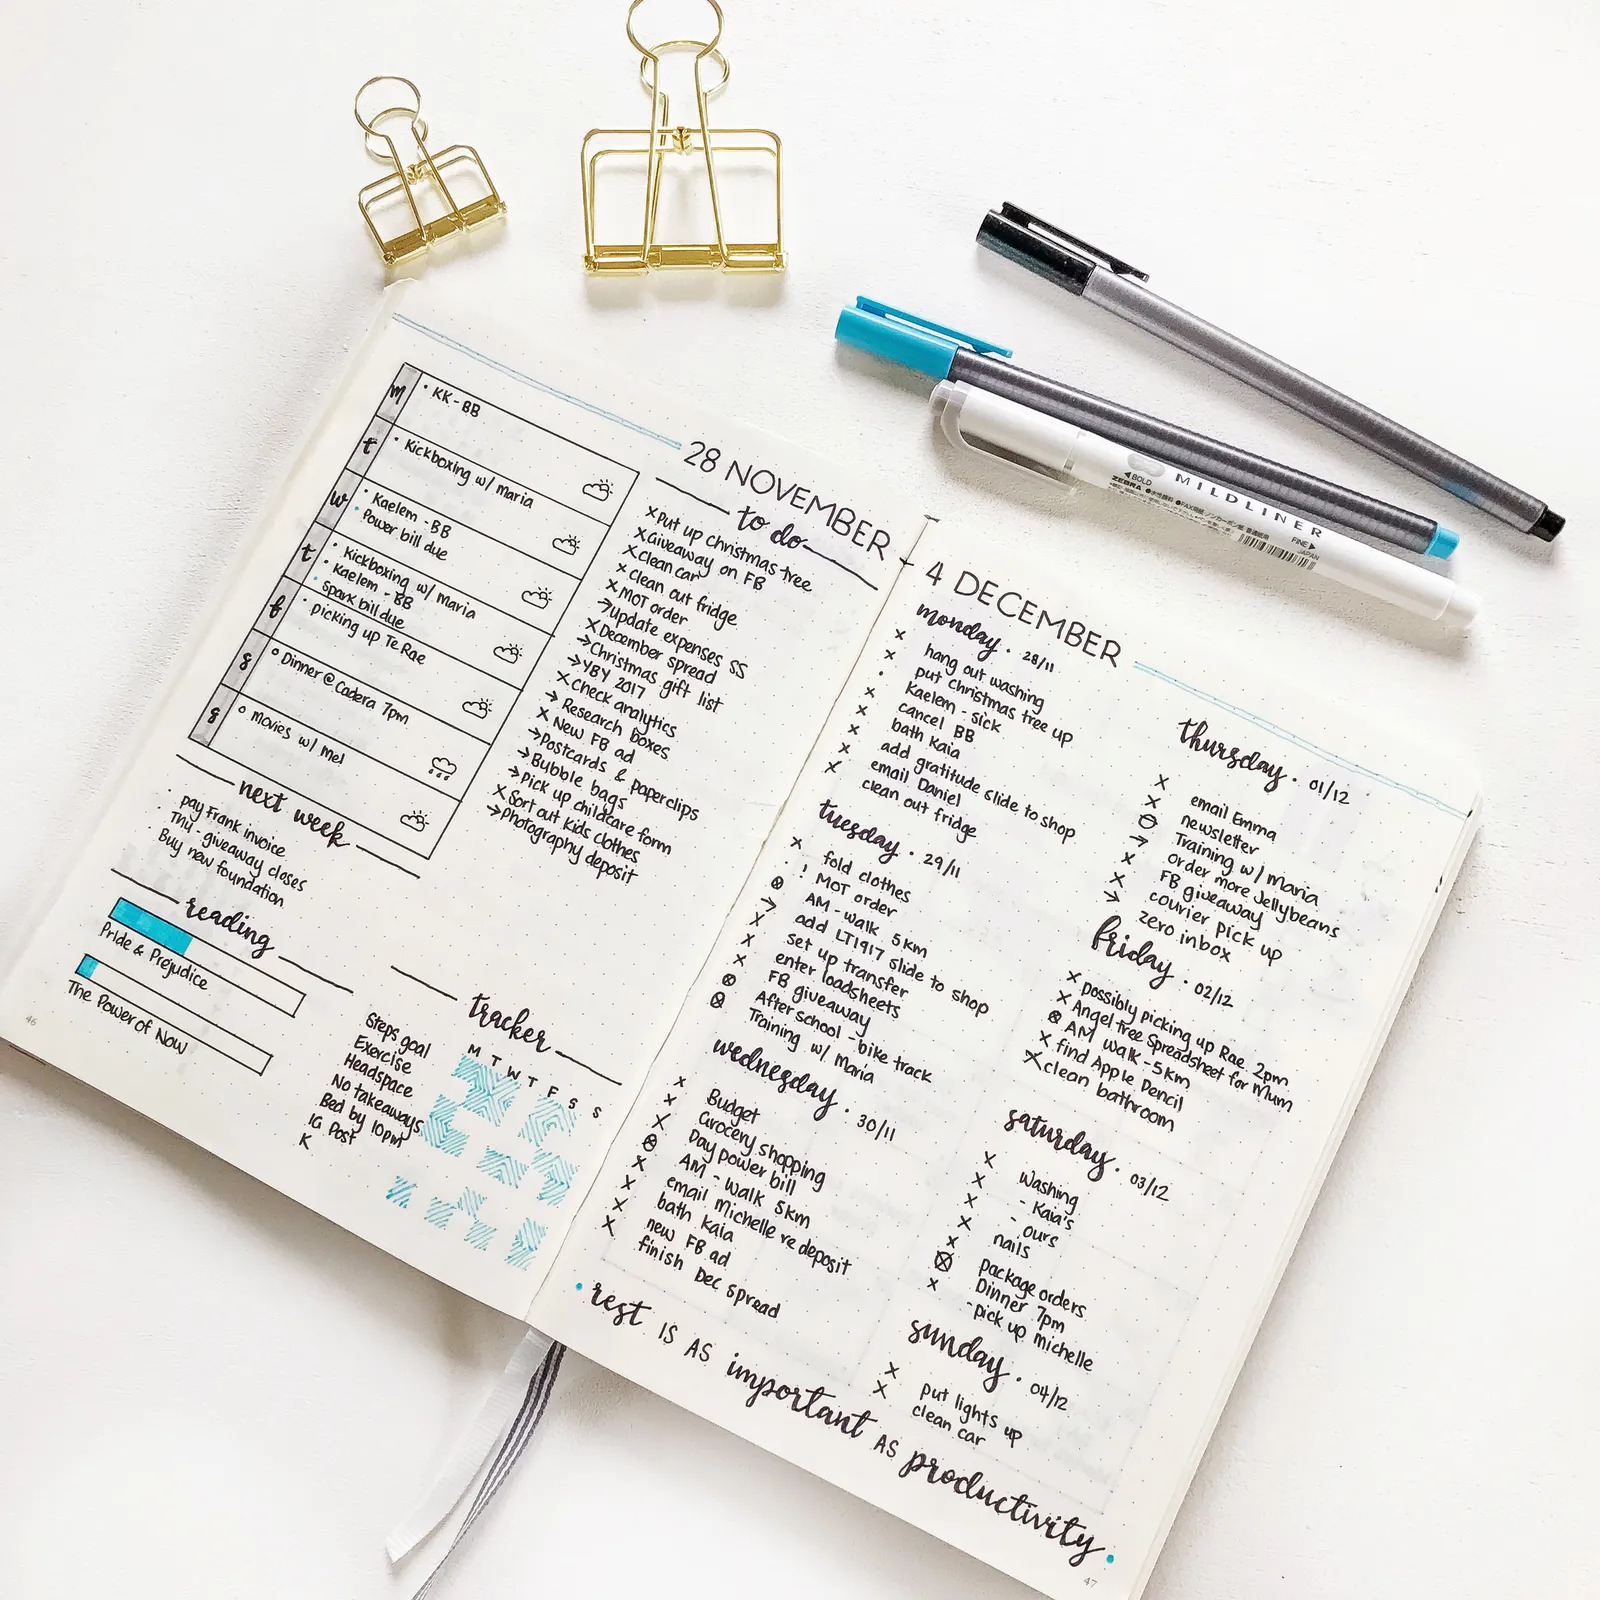 28 NOVEMBER - 4 DECEMBER
m
• KK - BB
t
• Kickboxing w/ maria
w
• Kaelem - BB
• Power bill due
t
• Kickboxing w/ maria
• Kaelem - BB
• Spark bill due
f
• picking up Te Rae
s
o Dinner @ Cadera 7pm
s
o movies w/ me!
next week
• pay Frank invoice
• Thu - giveaway closes
• Buy new foundation
reading
Pride & Prejudice
The Power of Now
46
to do
x Put up christmas tree
x Giveaway on FB
x Clean car
x Clean out fridge
x MOT order
→ Update expenses SS
x December spread
→ Christmas gift list
→ YBY 2017
x Check analytics
→ Research boxes
x New FB ad
→ Postcards & paperclips
→ Bubble bags
→ Pick up childcare form
x Sort out kids clothes
→ Photography deposit
tracker
M T W T F S S
Steps goal
Exercise
Headspace
No takeaways
Bed by 10pm
IG Post
K
monday • 28/11
x hang out washing
x put Christmas tree up
• Kaelem - sick
x cancel BB
x bath Kaia
x add gratitude slide to shop
x email Daniel
x clean out fridge
tuesday • 29/11
x fold clothes
! MOT order
⊗ AM - walk 5km
→ add LT1917 slide to shop
x set up transfer
x enter loadsheets
x FB giveaway
⊗ After school - bike track
⊗ Training w/ Maria
wednesday • 30/11
x Budget
x x Grocery shopping
x Day power bill
⊗ AM - walk 5km
x email michelle re deposit
x bath Kaia
x new FB ad
x finish Dec spread
thursday • 01/12
x email Emma
x newsletter
⊖ Training w/ maria
→ order more Jellybeans
x FB giveaway
x courier pick up
→ zero inbox
friday • 02/12
x possibly picking up Rae 2pm
x Angel tree Spreadsheet for Mum
⊗ AM walk - 5km
x find Apple Pencil
x clean bathroom
saturday • 03/12
x washing
x - Kaia's
x - ours
x nails
x package orders
⊗ Dinner 7pm
x - pick up michelle
sunday • 04/12
x put lights up
x clean car
• rest IS AS important AS productivity •
47
BOLD
ZEBRA
MILDLINER
FINE
JAPAN